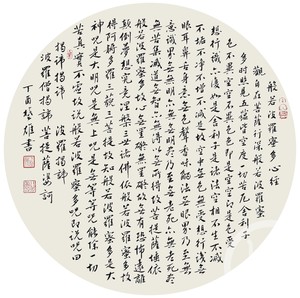 般若波羅蜜多心經
觀自在菩薩行深般若波羅蜜
多時照見五蘊皆空度一切苦厄舍利子
色不異空空不異色色即是空空即是色受
想行識亦復如是舍利子是諸法空相不生不滅
不垢不淨不增不減是故空中無色無受想行識無
眼耳鼻舌身意無色聲香味觸法無眼界乃至無
意識界無無明亦無無明盡乃至無老死亦無老死
盡無苦集滅道無智亦無得以無所得故菩提薩埵依
般若波羅蜜多故心無罣礙無罣礙故無有恐怖遠離顛
倒夢想究竟涅槃三世諸佛依般若波羅蜜多故
得阿耨多羅三藐三菩提故知般若波羅蜜多是大
神咒是大明咒是無上咒是無等等咒能除一切
苦真實不虛故說般若波羅蜜多咒即說咒曰
揭諦揭諦 波羅揭諦
波羅僧揭諦 菩提薩婆訶
丁酉 雄書